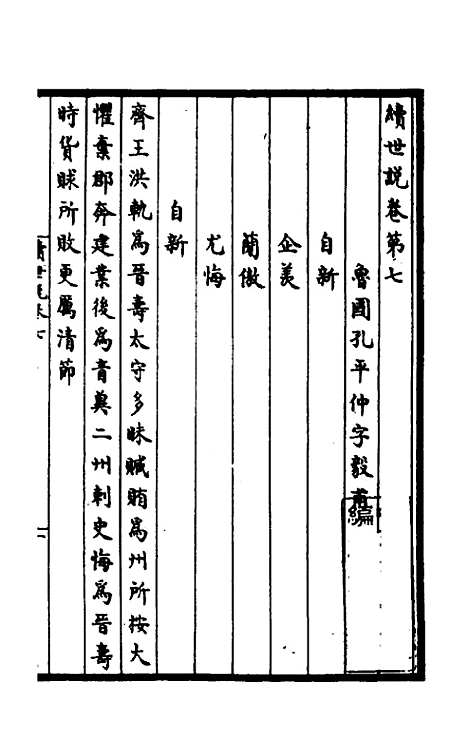 續世說卷第七
魯國孔平仲字毅甫編
自新
企羡
簡傲
尤悔
自新
齊王洪軌爲晉壽太守多昧贓賄爲州所按大
懼棄郡奔建業後爲青冀二州刺史悔爲晉壽
時貨賕所敗更厲清節
續世說卷七